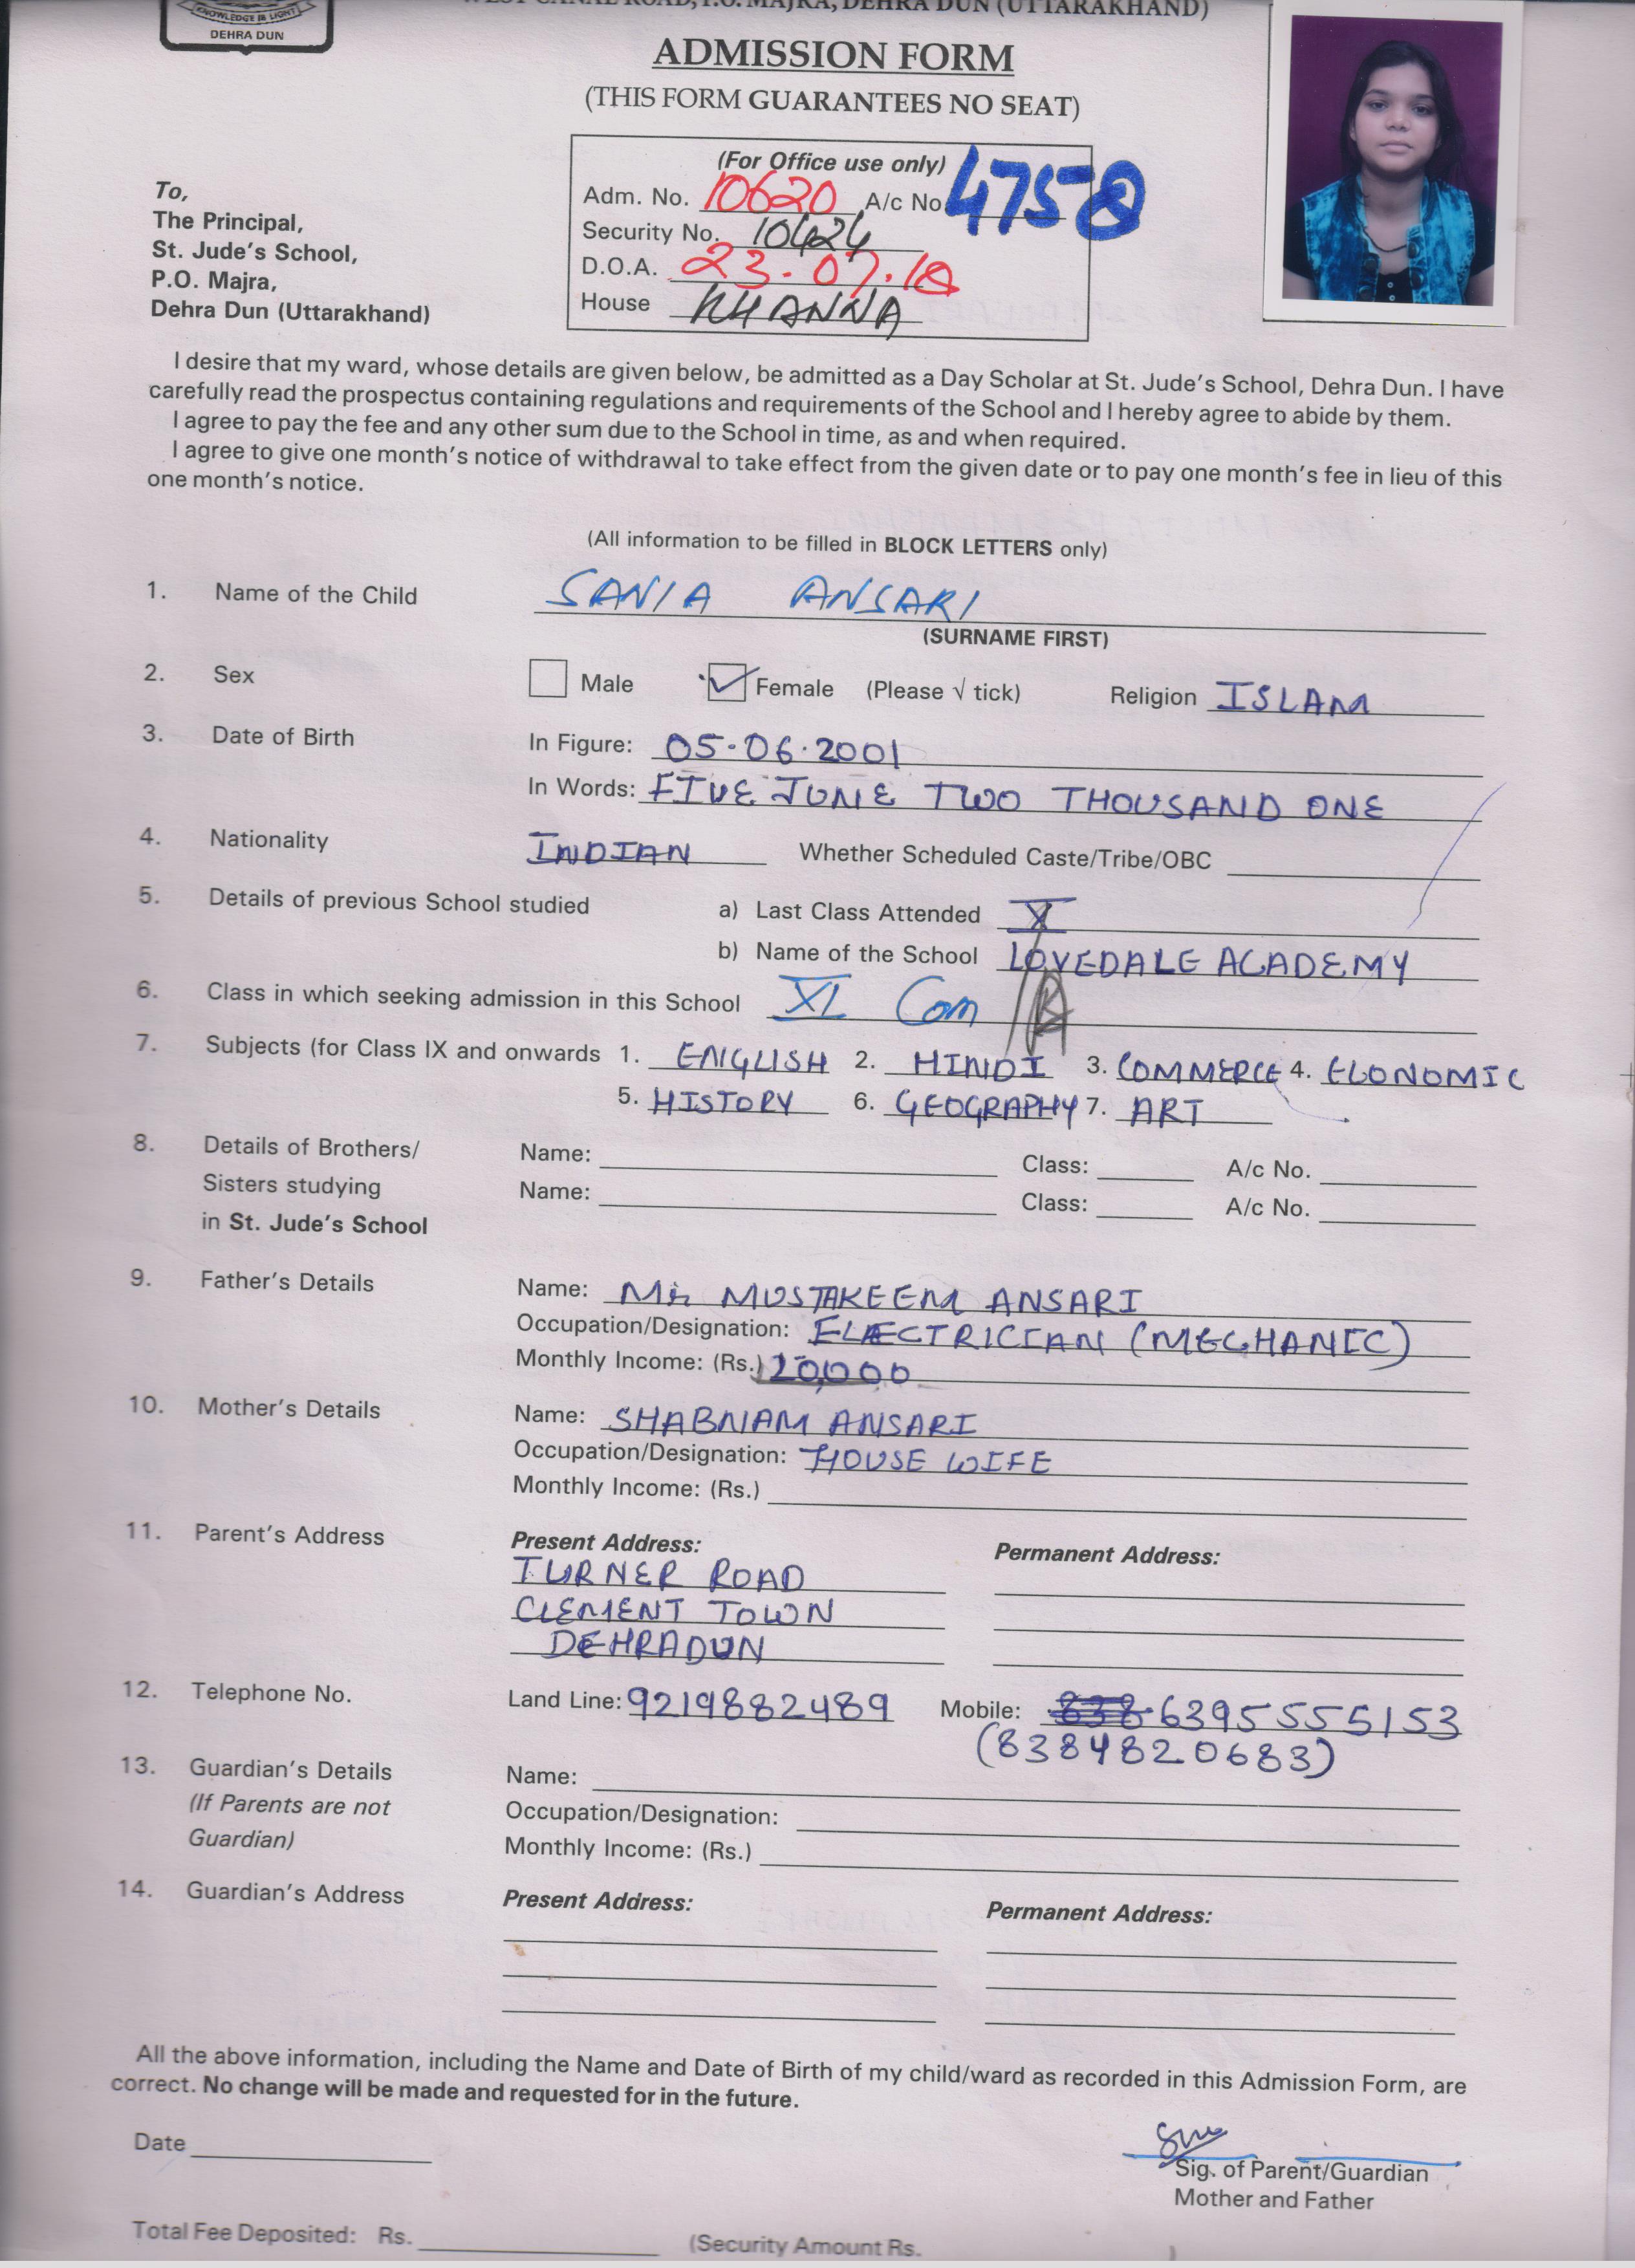 KNOWLEDGE IS LIGHT
DEHRA DUN
WEST CANAL ROAD, P.O. MAJRA, DEHRA DUN (UTTARAKHAND)
ADMISSION FORM
(THIS FORM GUARANTEES NO SEAT)
(For Office use only)
Adm. No. 10620 A/c No. 4758
Security No. 10424
D.O.A. 23.07.18
House KHANNA
To,
The Principal,
St. Jude's School,
P.O. Majra,
Dehra Dun (Uttarakhand)
I desire that my ward, whose details are given below, be admitted as a Day Scholar at St. Jude's School, Dehra Dun. I have
carefully read the prospectus containing regulations and requirements of the School and I hereby agree to abide by them.
I agree to pay the fee and any other sum due to the School in time, as and when required.
I agree to give one month's notice of withdrawal to take effect from the given date or to pay one month's fee in lieu of this
one month's notice.
(All information to be filled in BLOCK LETTERS only)
1. Name of the Child SANIA ANSARI
(SURNAME FIRST)
2. Sex Male Female (Please √ tick) Religion ISLAM
3. Date of Birth In Figure: 05.06.2001
In Words: FIVE JUNE TWO THOUSAND ONE
4. Nationality INDIAN Whether Scheduled Caste/Tribe/OBC
5. Details of previous School studied a) Last Class Attended X
b) Name of the School LOVEDALE ACADEMY
6. Class in which seeking admission in this School XI Com
7. Subjects (for Class IX and onwards 1. ENGLISH 2. HINDI 3. COMMERCE 4. ECONOMIC
5. HISTORY 6. GEOGRAPHY 7. ART
8. Details of Brothers/ Name: Class: A/c No.
Sisters studying Name: Class: A/c No.
in St. Jude's School
9. Father's Details Name: Mr MUSTAKEEM ANSARI
Occupation/Designation: ELECTRICIAN (MECHANIC)
Monthly Income: (Rs.) 20,000
10. Mother's Details Name: SHABNAM ANSARI
Occupation/Designation: HOUSE WIFE
Monthly Income: (Rs.)
11. Parent's Address Present Address: Permanent Address:
TURNER ROAD
CLEMENT TOWN
DEHRADUN
12. Telephone No. Land Line: 9219882489 Mobile: 838 6395555153
(8384820683)
13. Guardian's Details Name:
(If Parents are not Occupation/Designation:
Guardian) Monthly Income: (Rs.)
14. Guardian's Address Present Address: Permanent Address:
All the above information, including the Name and Date of Birth of my child/ward as recorded in this Admission Form, are
correct. No change will be made and requested for in the future.
Date
Sig. of Parent/Guardian
Mother and Father
Total Fee Deposited: Rs. (Security Amount Rs.